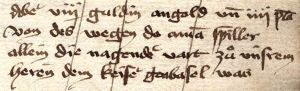 viij guldin angold vn iiij
von des wegen do ama spiller
allein die nagende vart zů vnsrem
heren dem keiser gen basel was